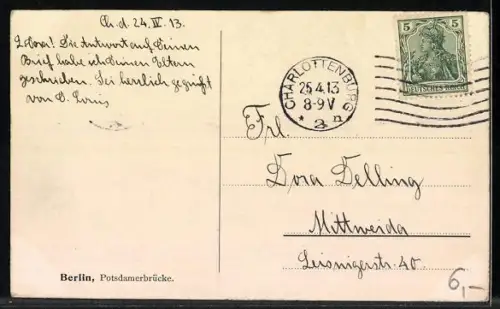 Ch. d. 24. IV. 13.
L. Dora! Die Antwort auf Deinen
Brief habe ich Deinen Eltern
geschrieben. Sei herzlich gegrüßt
von D. Louis
CHARLOTTENBURG
25.4.13
8-9 V
* 2 n
5 5
DEUTSCHES REICH
Frl.
Dora Delling
Mittweida
Leisnigerstr. 40.
Berlin, Potsdamerbrücke.
6,-